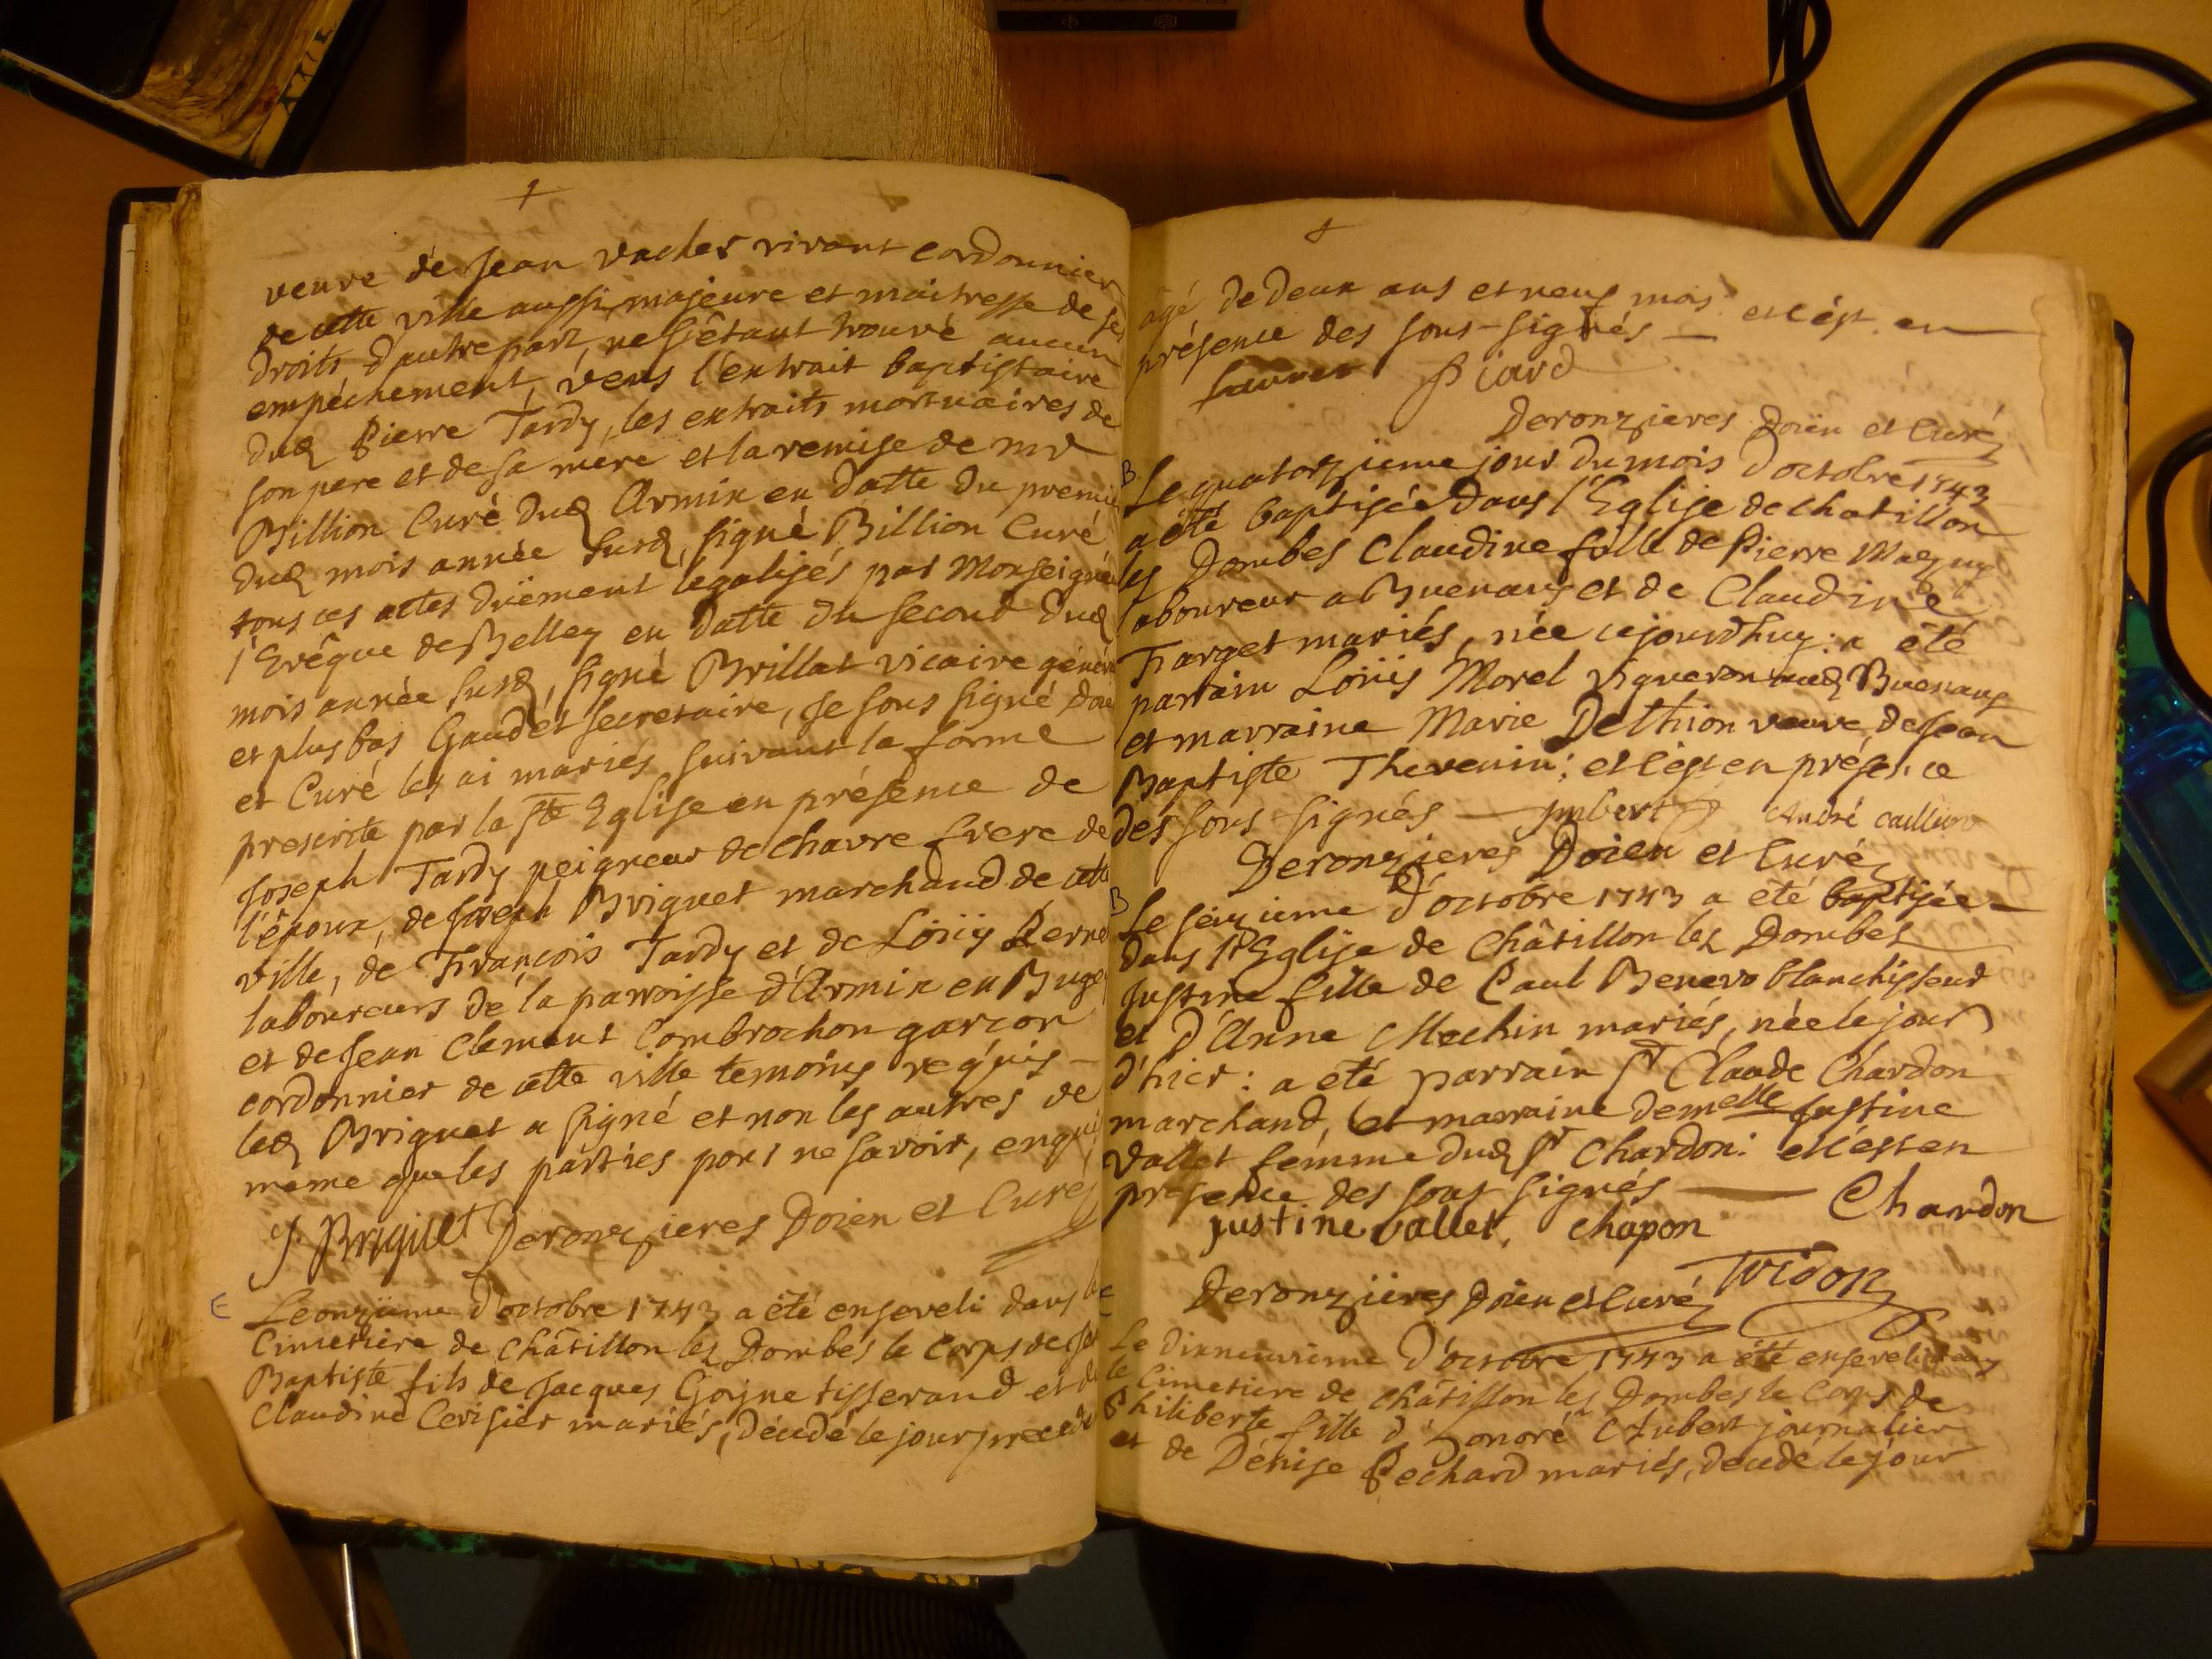 veuve de Jean vacher vivant cordonnier
de cette ville aussi majeure et maitresse de ses
droits d'autre part, ne s'étant trouvé aucun
empéchement, veus l'extrait baptistaire
dud Pierre Tardy, les extraits mortuaires de
son pere et de sa mere et la remise de mr
Billion Curé dud Armix en datte du premier
dud mois année susd, signé Billion Curé
tous ces actes düement légalisés par Monseigneur
l'Evêque de Belley en datte du second dud
mois année susd, signé Brillat vicaire général
et plus bas Gaudet secretaire, Je sous signé doien
et Curé les ai mariés suivant la forme
prescrite par la ste Eglise en présence de
Joseph Tardy peigneur de chavre frere de
l'époux, de Joseph Briguet marchand de cette
ville, de François Tardy et de Loüis
laboureurs de la parroisse d'Armix en Bugey
et de Jean Clement Combrochon garçon
cordonnier de cette ville temoins requis
led Briguet a signé et non les autres de
meme que les parties pour ne savoir, enquis
J. Briguet Deronzieres Doien et Curé
E Le onzieme d'octobre 1743 a été enseveli dans le
Cimetiere de Châtillon les Dombes le Corps de Jean
Baptiste fils de Jacques Goyne tisserand et de
Claudine Cerisier mariés, décédé le jour precedent
agé de deux ans et neuf mois et c'est en
présence des sous-signés
Picard
Deronzieres Doien et Curé
B Le quatorzieme jour du mois d'octobre 1743
a été baptisée dans l'Eglise de chatillon
les Dombes Claudine fille de Pierre
laboureur a Buenans et de Claudine
Farget mariés, née cejourdhuy: a été
parrain Loüis Morel vigneron aud Buenans
et marraine Marie Delthion veuve de Jean
Baptiste Thevenin: et c'est en présence
des sous signés Imbert André
Deronzieres Doien et Curé
B Le seizieme d'octobre 1743 a été baptisée
dans l'Eglise de Châtillon les Dombes
Justine fille de Paul Benevo blanchisseur
et d'Anne Mechin mariés, née le jour
d'hier: a été parrain sr Claude Chardon
marchand, et marraine demelle Justine
Vallet femme dud sr Chardon: et c'est en
présence des sous signés Chardon
justine vallet, chapon
Deronzieres Doien et Curé
E Le dixneuvieme d'octobre 1743 a été enseveli dans
le Cimetiere de châtillon les Dombes le Corps de
Philiberte fille d'honoré Aubert journalier
et de Dénise Pechard mariés, décédé le jour